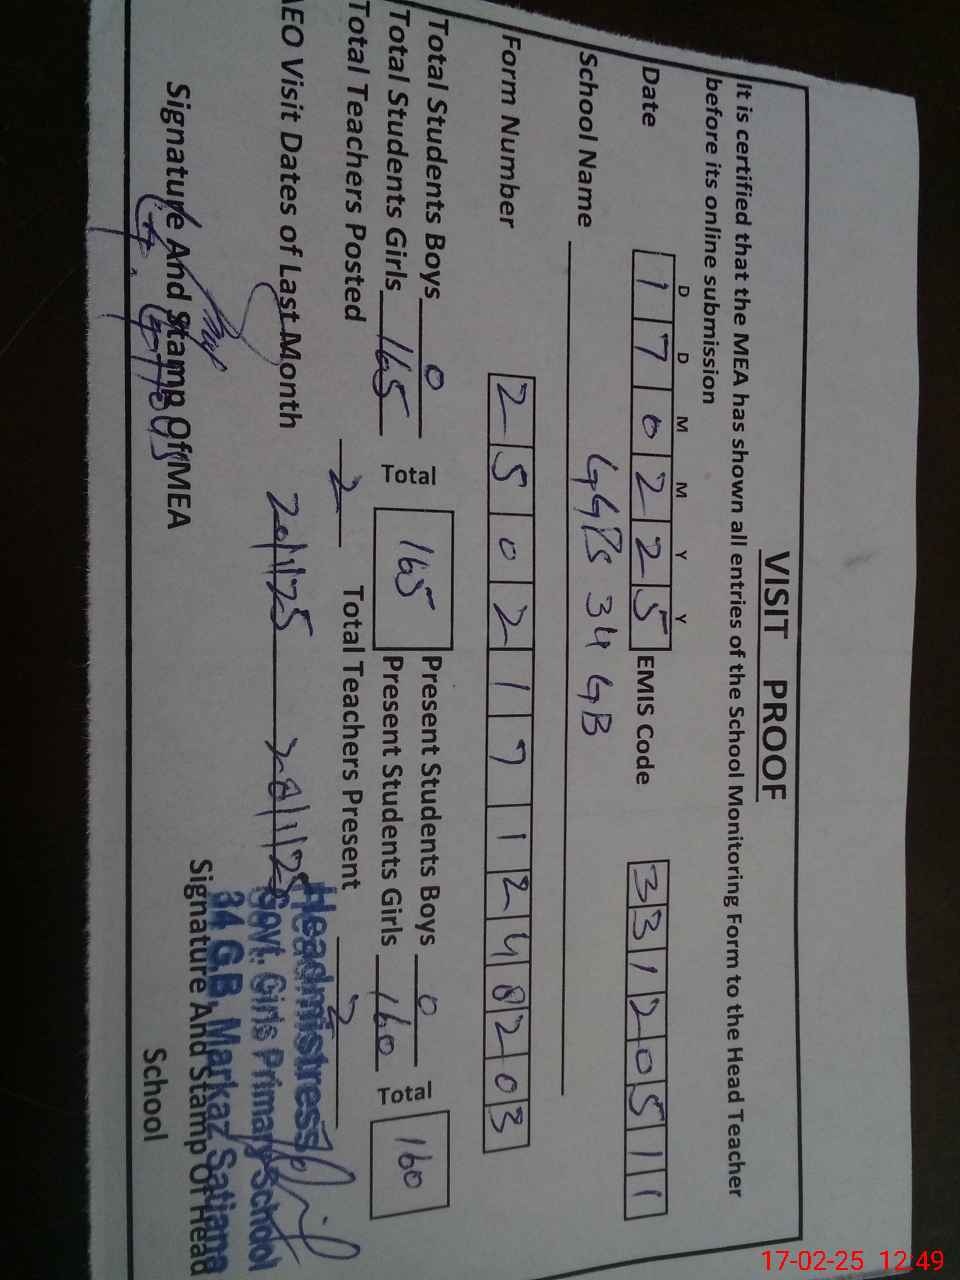 VISIT PROOF
It is certified that the MEA has shown all entries of the School Monitoring Form to the Head Teacher
before its online submission
D D M M Y Y
Date 1 7 0 2 2 5 EMIS Code 3 3 1 2 0 5 1 1
School Name GGPS 34 GB
Form Number 2 5 0 2 1 7 1 2 4 8 2 0 3
Total Students Boys 0 Present Students Boys 0
Total 165 Total 160
Total Students Girls 165 Present Students Girls 160
Total Teachers Posted 2 Total Teachers Present 2
AEO Visit Dates of Last Month 20/1/25 28/1/25
Headmistress
Govt. Girls Primary School
34 G.B, Markaz Satiana
Signature And Stamp Of MEA Signature And Stamp Of Head
School
17-02-25 12:49